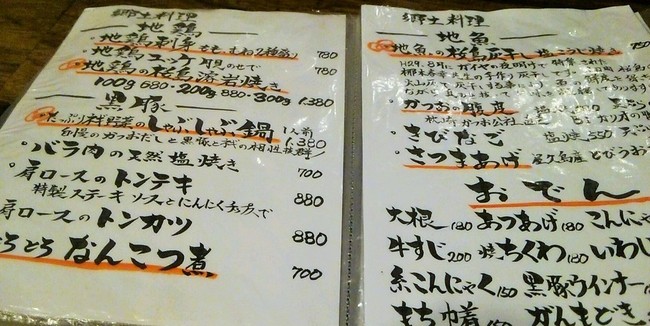 郷土料理
地鶏
地鶏刺身 ももむね(2種盛り) 780
地鶏ユッケ 卵のせで 780
地鶏の桜島溶岩焼き
100g 680・200g 880・300g 1,380
黒豚
たっぷり料野菜のしゃぶしゃぶ鍋 1人前 1,380
自慢のかつおだしと黒豚との相性抜群!
・バラ肉の天然塩焼き 700
・肩ロースのトンテキ 880
特製ステーキソースとにんにくチップで
肩ロースのトンカツ 880
とろとろなんこつ煮 700
郷土料理
地魚
地魚の桜島灰干し 塩こうじ焼き 780
H29.8月にガイヤの夜明けで特集された
かつおの腹皮
きびなご 塩焼き 550
さつまあげ 屋久島産とびうお
おでん
大根 180 あつあげ 180 こんにゃ
牛すじ 200 焼ちくわ 180 いわし
糸こんにゃく 150 黒豚ウインナー
もち巾着 がんもどき